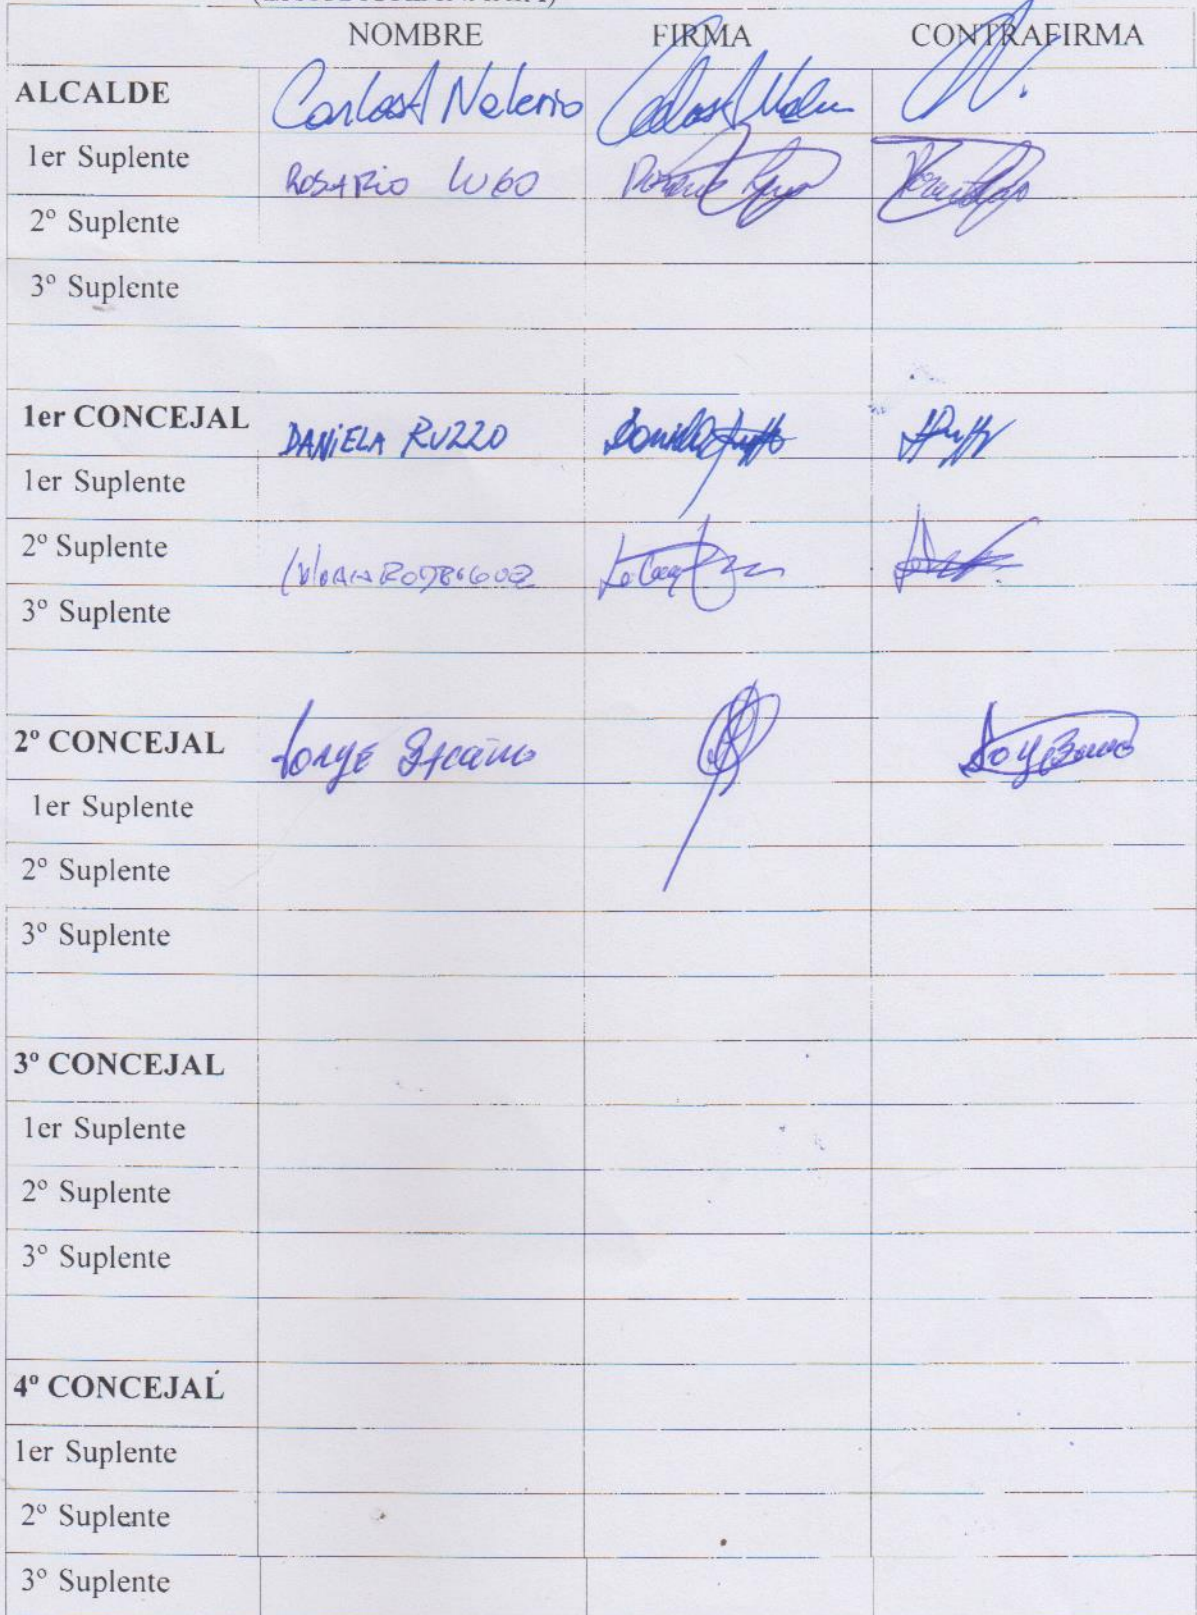 NOMBRE FIRMA CONTRAFIRMA
ALCALDE Carlos A Nalerio
1er Suplente ROSARIO LUGO
2º Suplente
3º Suplente
1er CONCEJAL DANIELA RUZZO
1er Suplente
2º Suplente
3º Suplente
2º CONCEJAL Jorge
1er Suplente
2º Suplente
3º Suplente
3º CONCEJAL
1er Suplente
2º Suplente
3º Suplente
4º CONCEJAL
1er Suplente
2º Suplente
3º Suplente